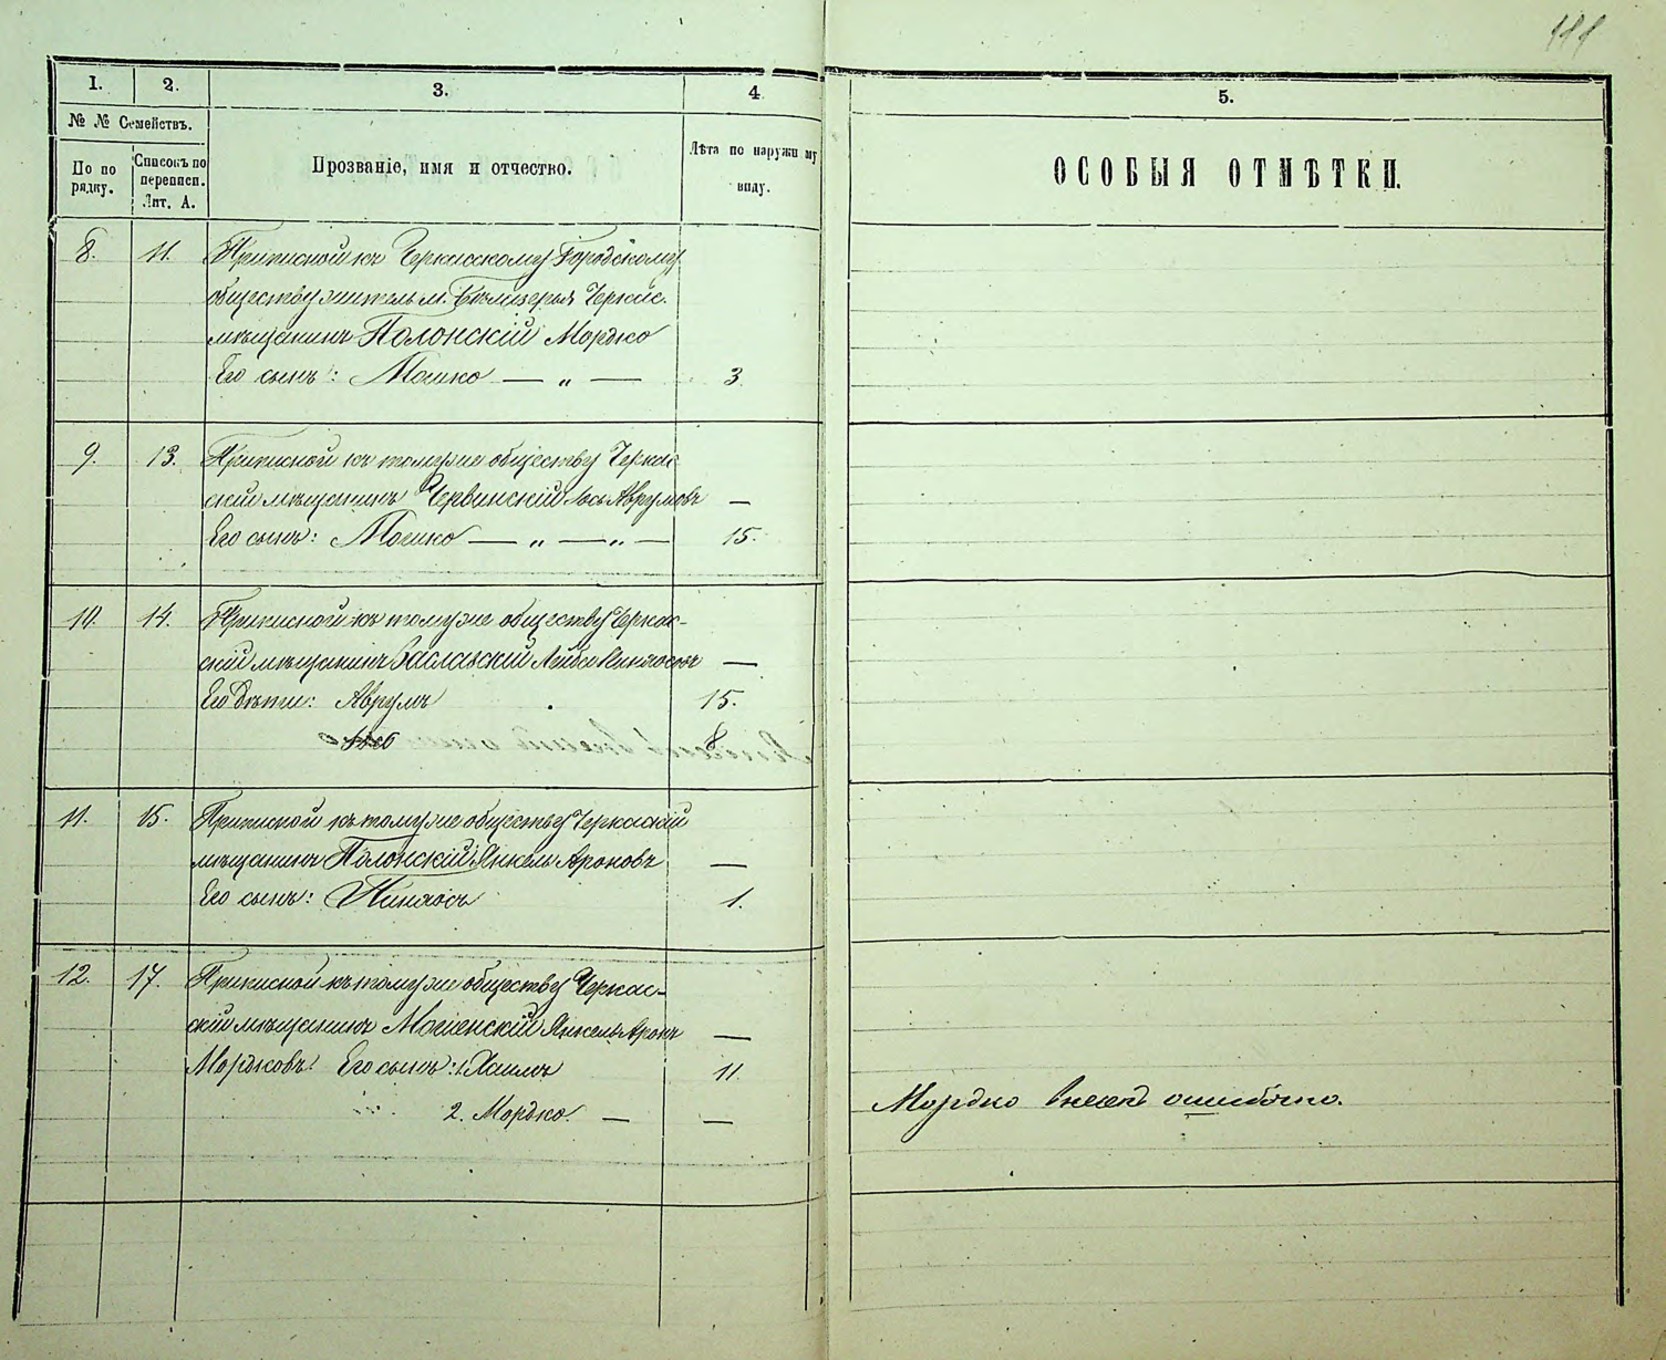 111
1. 2. 3. 4 5.
№ № Семействъ.
По по рядку. Списокъ по переписи. Лит. А. Прозваніе, имя и отчество. Лѣта по наружн му виду. ОСОБЫЯ ОТМѢТКИ.
8. 11. Приписной къ Черкасскому Городскому
обществу житель м. Бѣлозерья Черкас.
мѣщанинъ Полонскій Мордко
Его сынъ: Мошко — „ — 3
9. 13. Приписной къ тому же обществу Черкас
скій мѣщанинъ Червинскій Іось Аврумовъ —
Его сынъ: Мошко — „ — „ — 15.
10. 14. Приписной къ тому же обществу Черкас-
скій мѣщанинъ Заславскій Лейба Пинхосовъ —
Его дѣти: Аврумъ 15.
8
11. 15. Приписной къ тому же обществу Черкаскій
мѣщанинъ Полонскій Янкель Ароновъ —
Его сынъ: Пинхосъ 1.
12. 17. Приписной къ тому же обществу Черкас-
скій мѣщанинъ Янкель Аронъ —
Мордковъ. Его сынъ: 1. Хаимъ 11
2. Мордко. — — Мордко внесенъ ошибочно.